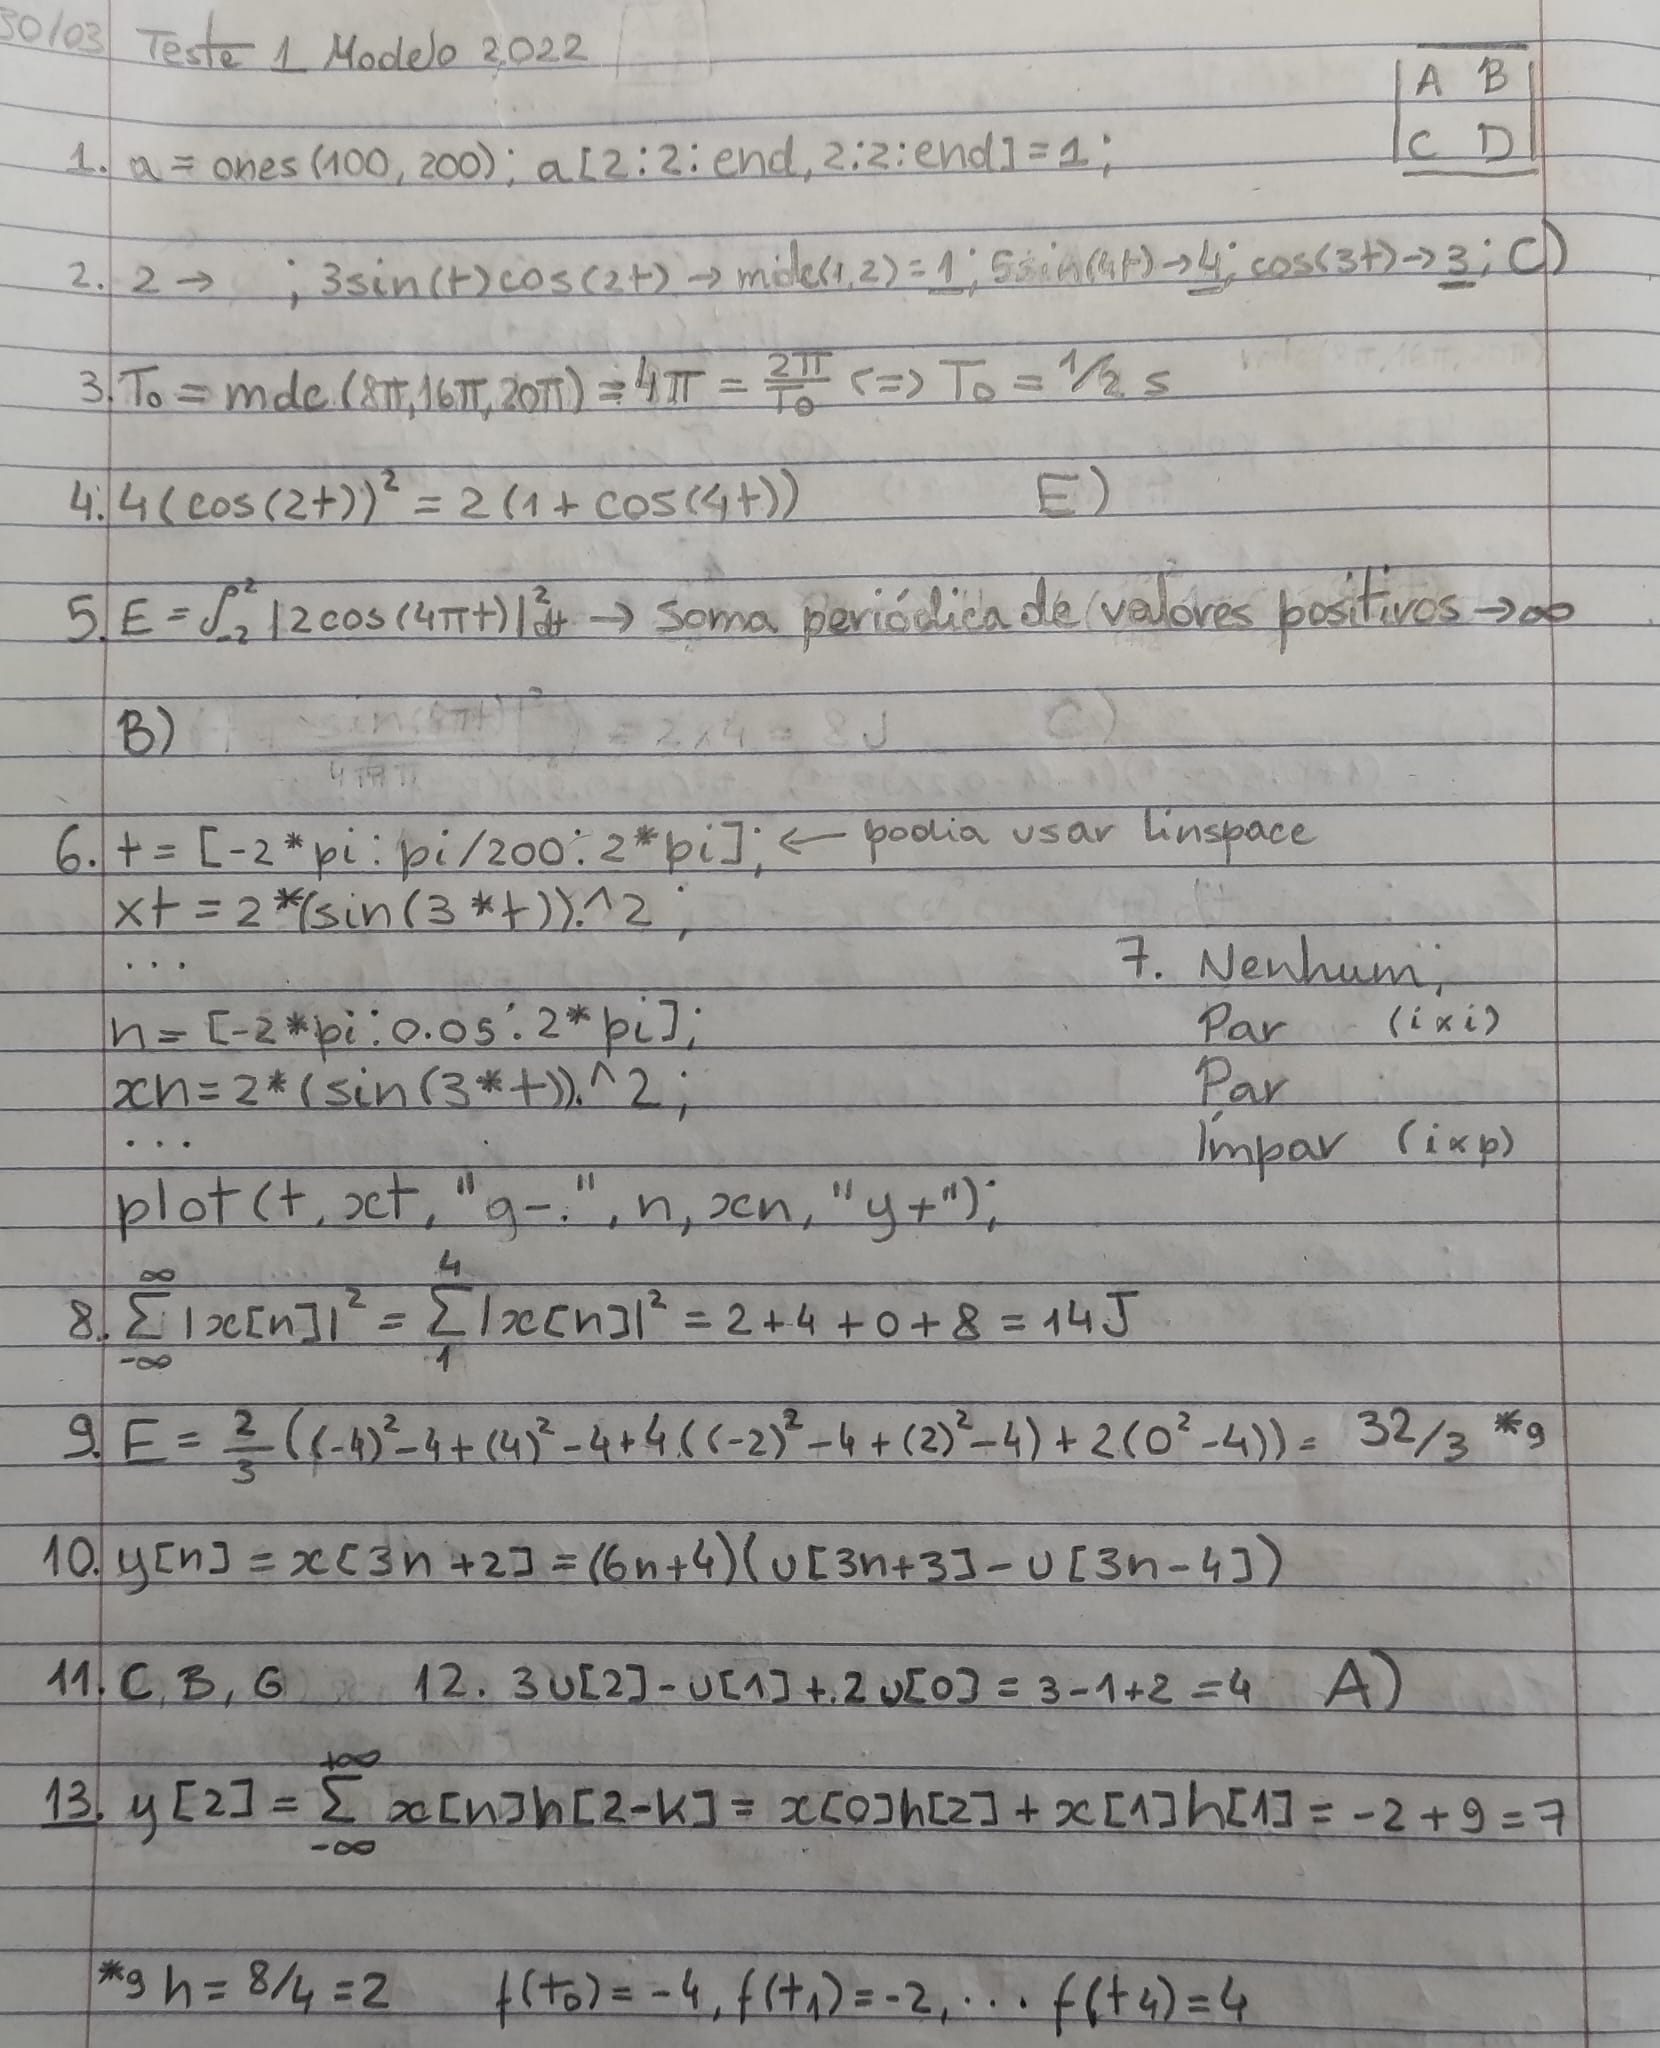 30/03 Teste 1 Modelo 2022
A B
C D
1. a = ones(100, 200); a[2:2:end, 2:2:end] = 1;
2. 2 → ; 3sin(t)cos(2t) → mdc(1,2) = 1; 5sin(4t) → 4; cos(3t) → 3; C)
3. T₀ = mdc(8π, 16π, 20π) = 4π = 2π/T₀ <=> T₀ = 1/2 s
4. 4(cos(2t))² = 2(1 + cos(4t)) E)
5. E = ∫₋₂² |2cos(4πt)|² dt → Soma periódica de valores positivos → ∞
B)
6. t = [-2*pi : pi/200 : 2*pi]; ← podia usar linspace
xt = 2*(sin(3*t)).^2;
...
n = [-2*pi : 0.05 : 2*pi];
xn = 2*(sin(3*t)).^2;
...
plot(t, xt, "g-.", n, xn, "y+");
7. Nenhum;
Par (i×i)
Par
Ímpar (i×p)
8. ∑₋∞^∞ |x[n]|² = ∑₁⁴ |x[n]|² = 2 + 4 + 0 + 8 = 14 J
9. E = 2/3 ((-4)² - 4 + (4)² - 4 + 4((-2)² - 4 + (2)² - 4) + 2(0² - 4)) = 32/3 *9
10. y[n] = x[3n + 2] = (6n+4)(u[3n+3] - u[3n-4])
11. C, B, G 12. 3u[2] - u[1] + 2u[0] = 3 - 1 + 2 = 4 A)
13. y[2] = ∑₋∞^+∞ x[n]h[2-k] = x[0]h[2] + x[1]h[1] = -2 + 9 = 7
*9 h = 8/4 = 2 f(t₀) = -4, f(t₁) = -2, ... f(t4) = 4